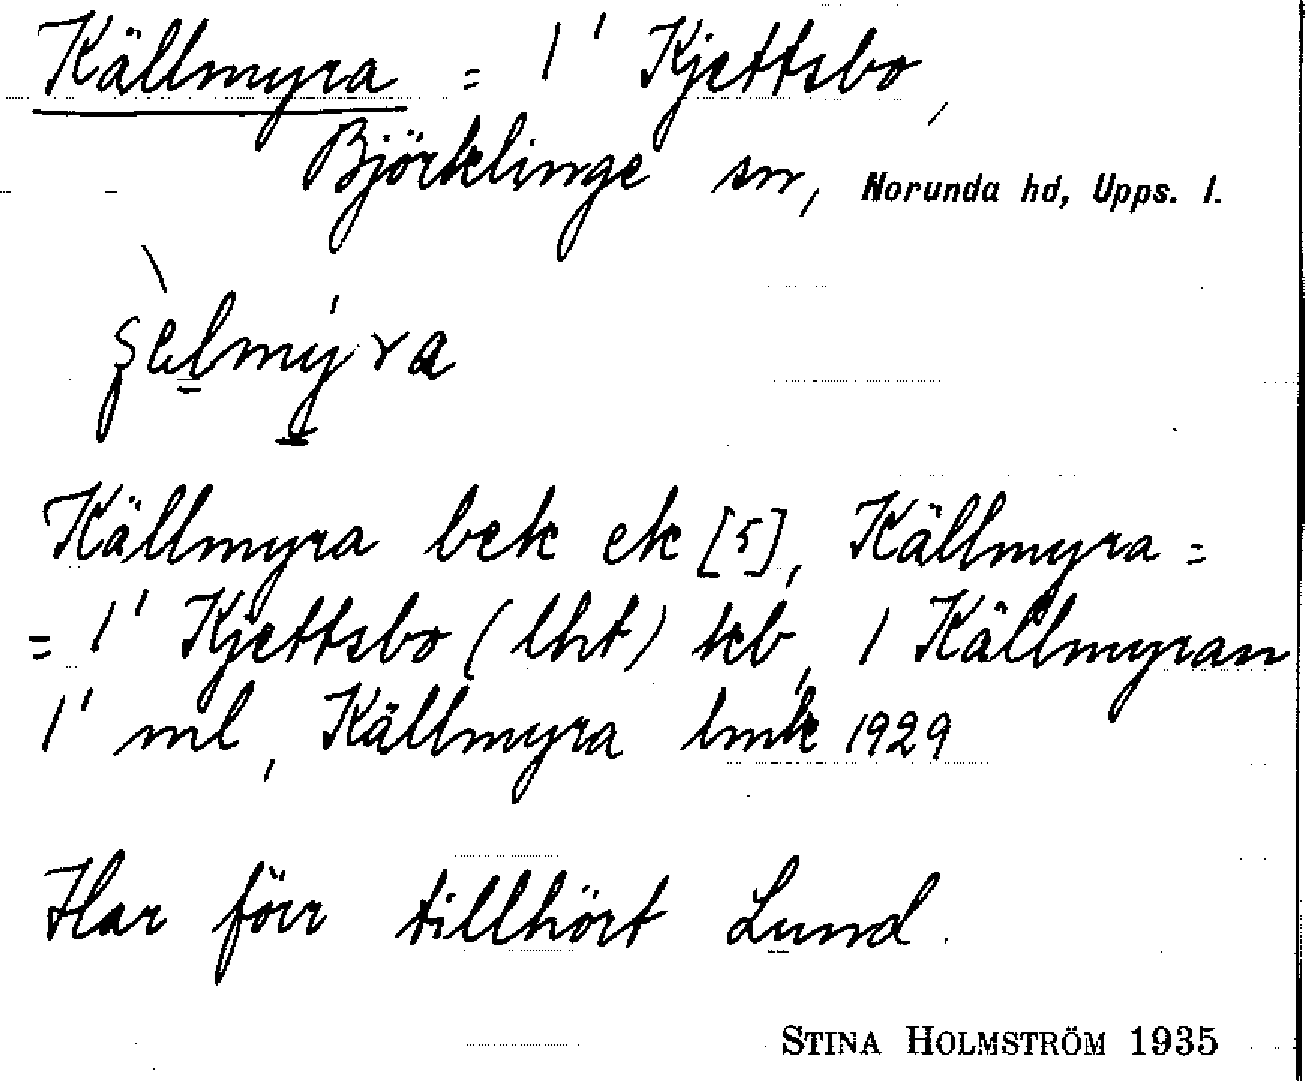 Källmyra = 1' Kjettsbo,
Björklinge sn, Norunda hd, Upps. l.
Källmyra bek ek [5], Källmyra =
= 1' Kjettsbo (lht) kb, 1 Källmyran
1' ml, Källmyra lmk 1929
Har förr tillhört Lund.
STINA HOLMSTRÖM 1935